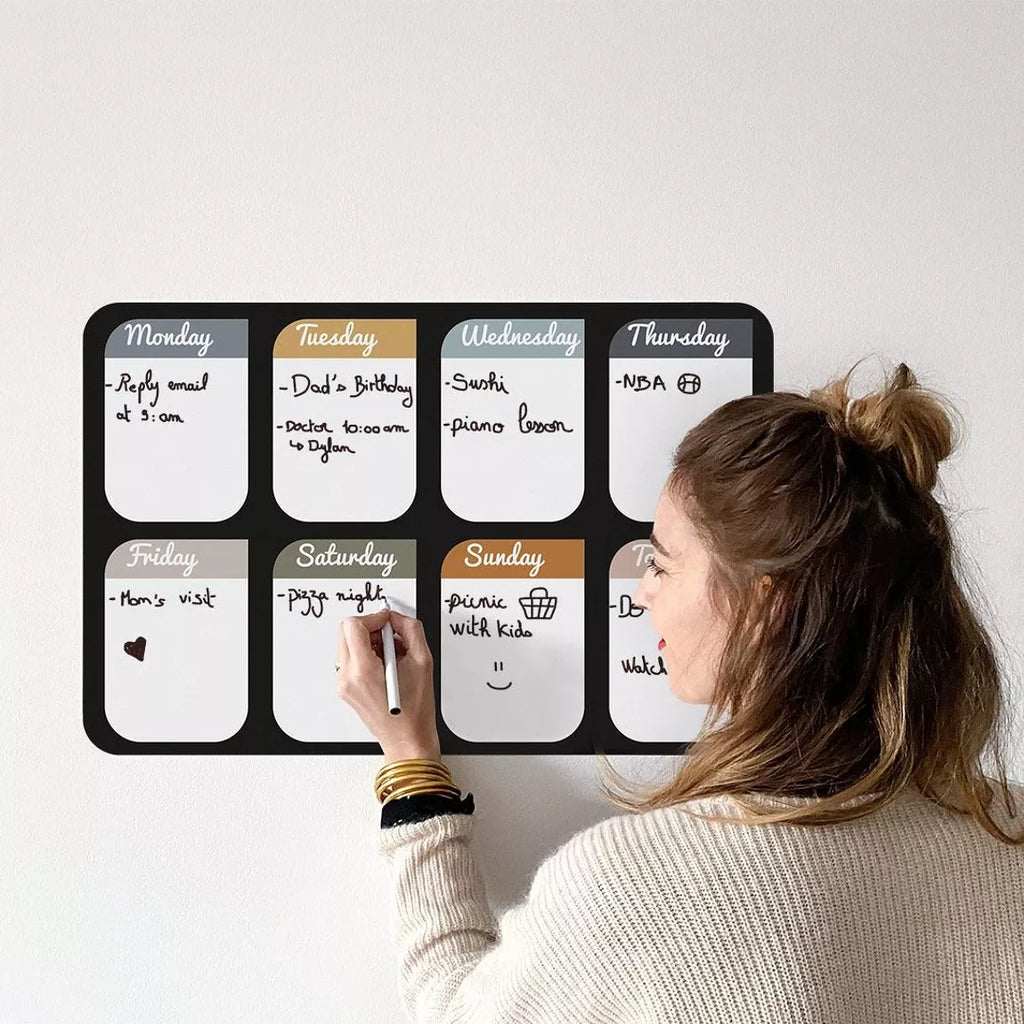 Monday
- Reply email
at 9:am
Tuesday
- Dad's Birthday
- Doctor 10:00 am
↳ Dylan
Wednesday
- Sushi
- piano lesson
Thursday
- NBA
Friday
- Mom's visit
Saturday
- pizza night
Sunday
- picnic
with kids